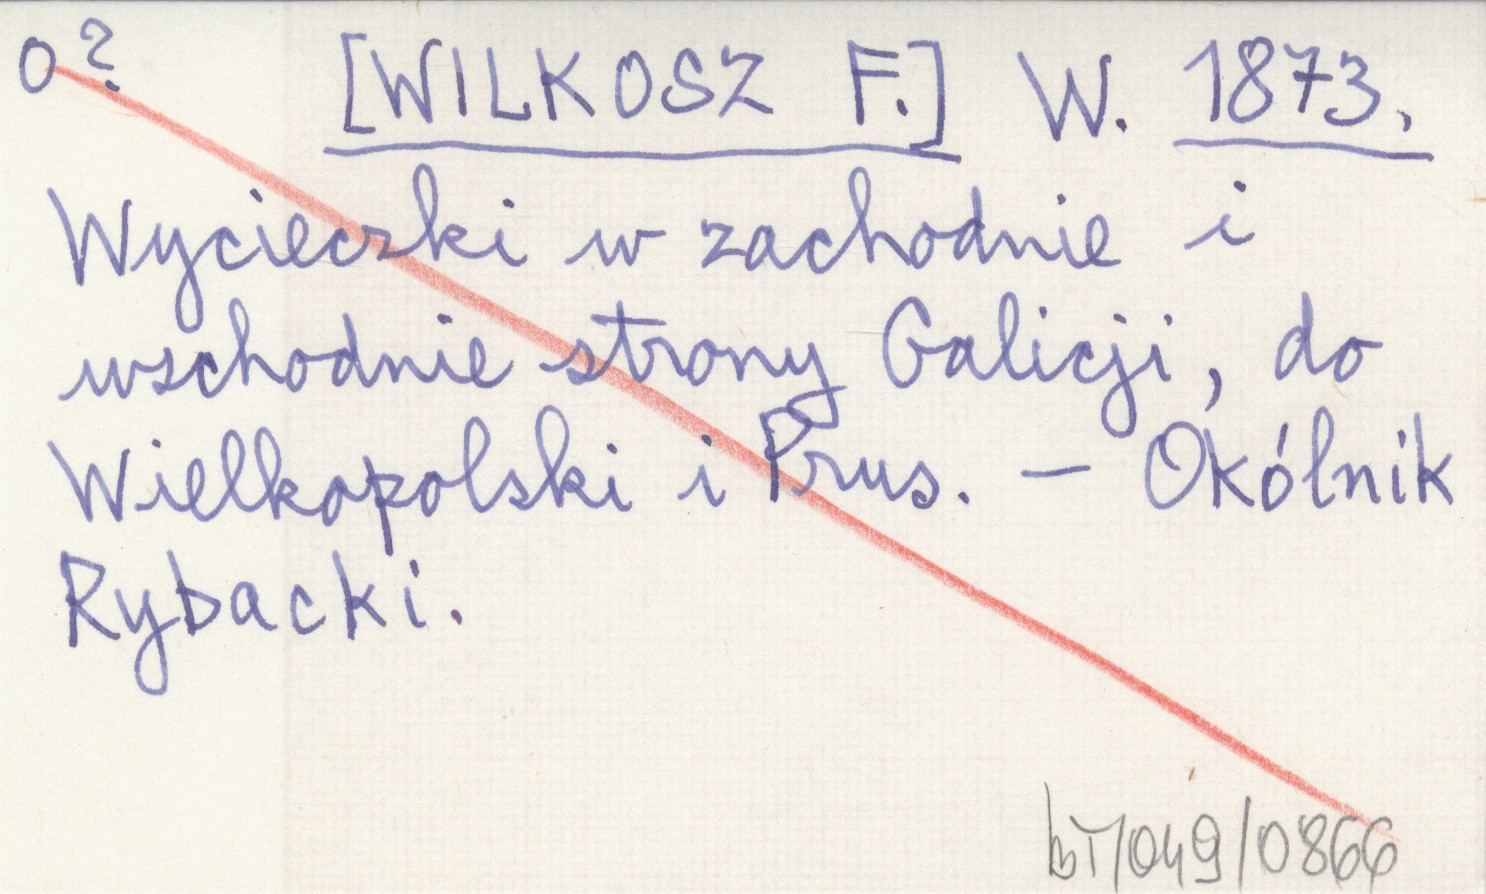 O? [WILKOSZ F.] W. 1873.
Wycieczki w zachodnie i
wschodnie strony Galicji, do
Wielkopolski i Prus. — Okólnik
Rybacki.
bT/049/0866